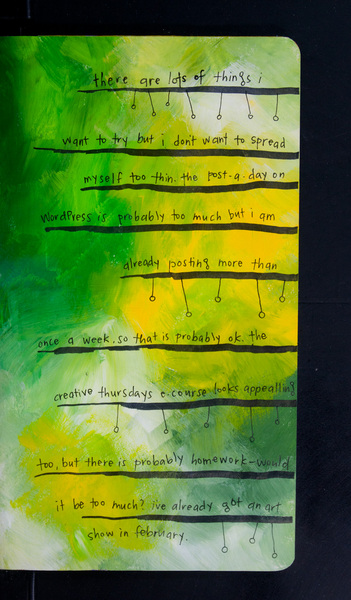 there are lots of things i
want to try but i don't want to spread
myself too thin. the post-a-day on
wordpress is probably too much but i am
already posting more than
once a week. so that is probably ok. the
creative thursdays e-course looks appealling
too, but there is probably homework-would
it be too much? ive already got an art
show in february.